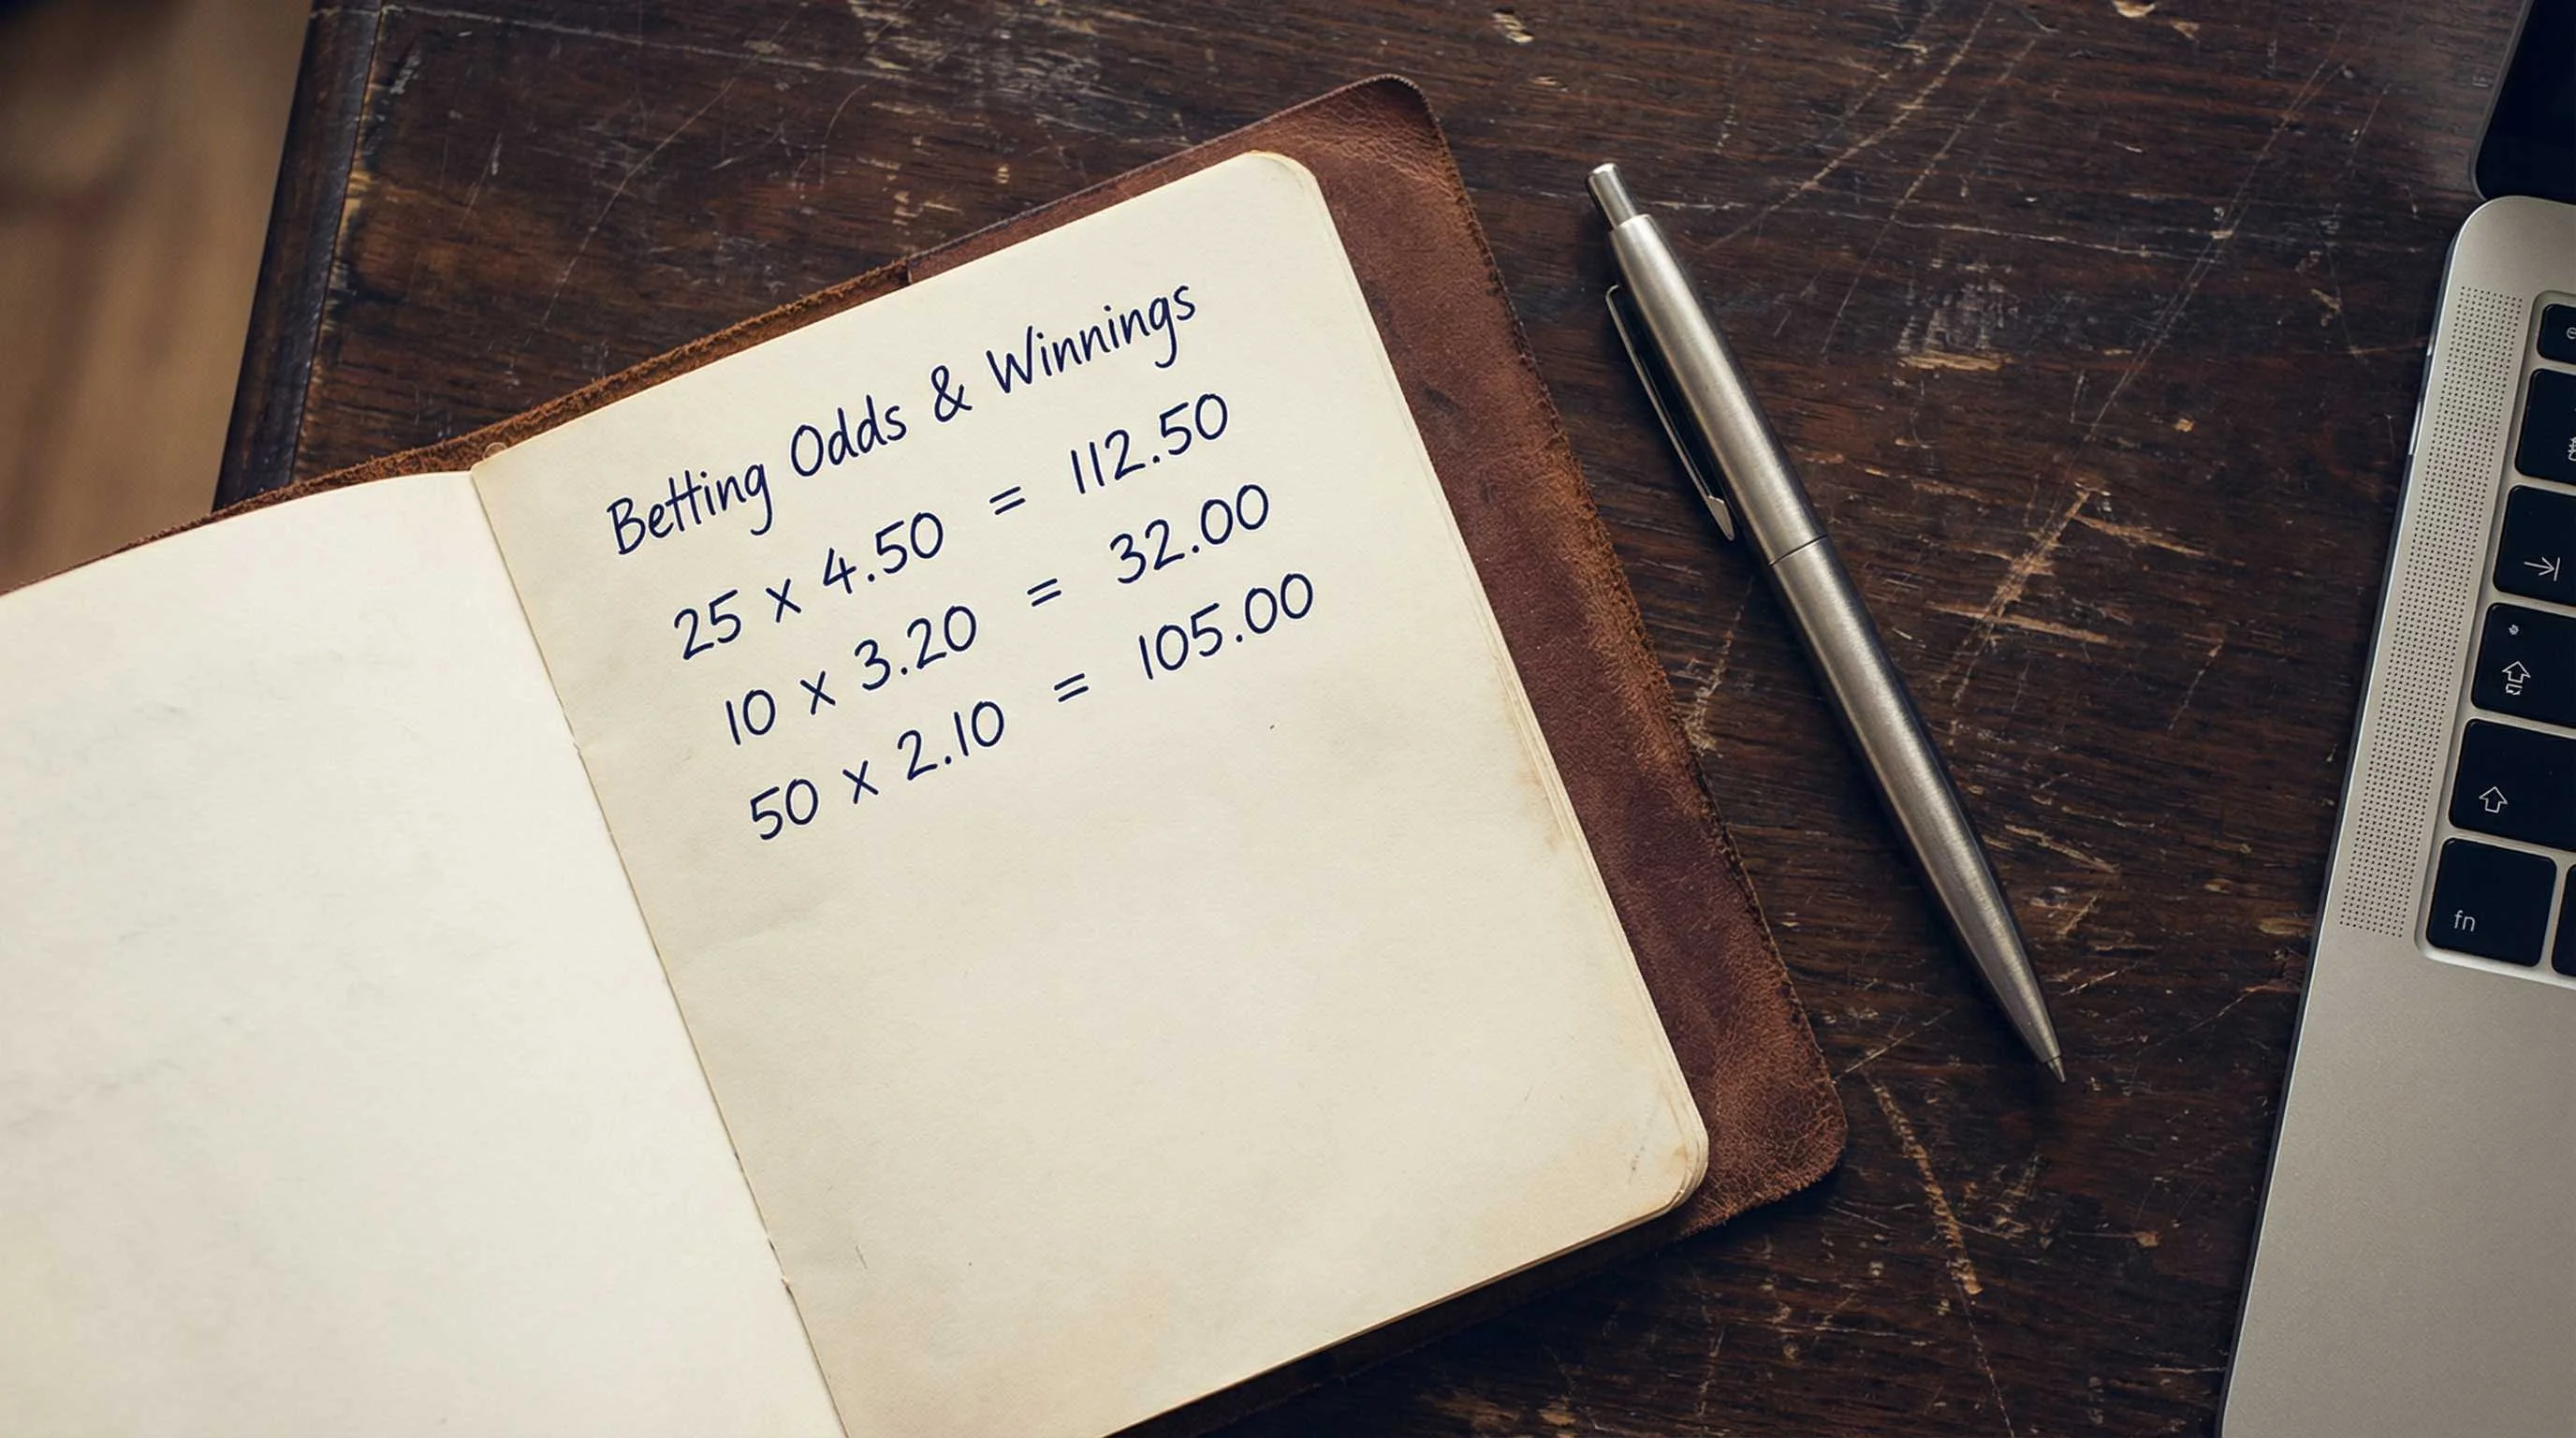 Betting Odds & Winnings
25 x 4.50 = 112.50
10 x 3.20 = 32.00
50 x 2.10 = 105.00
fn